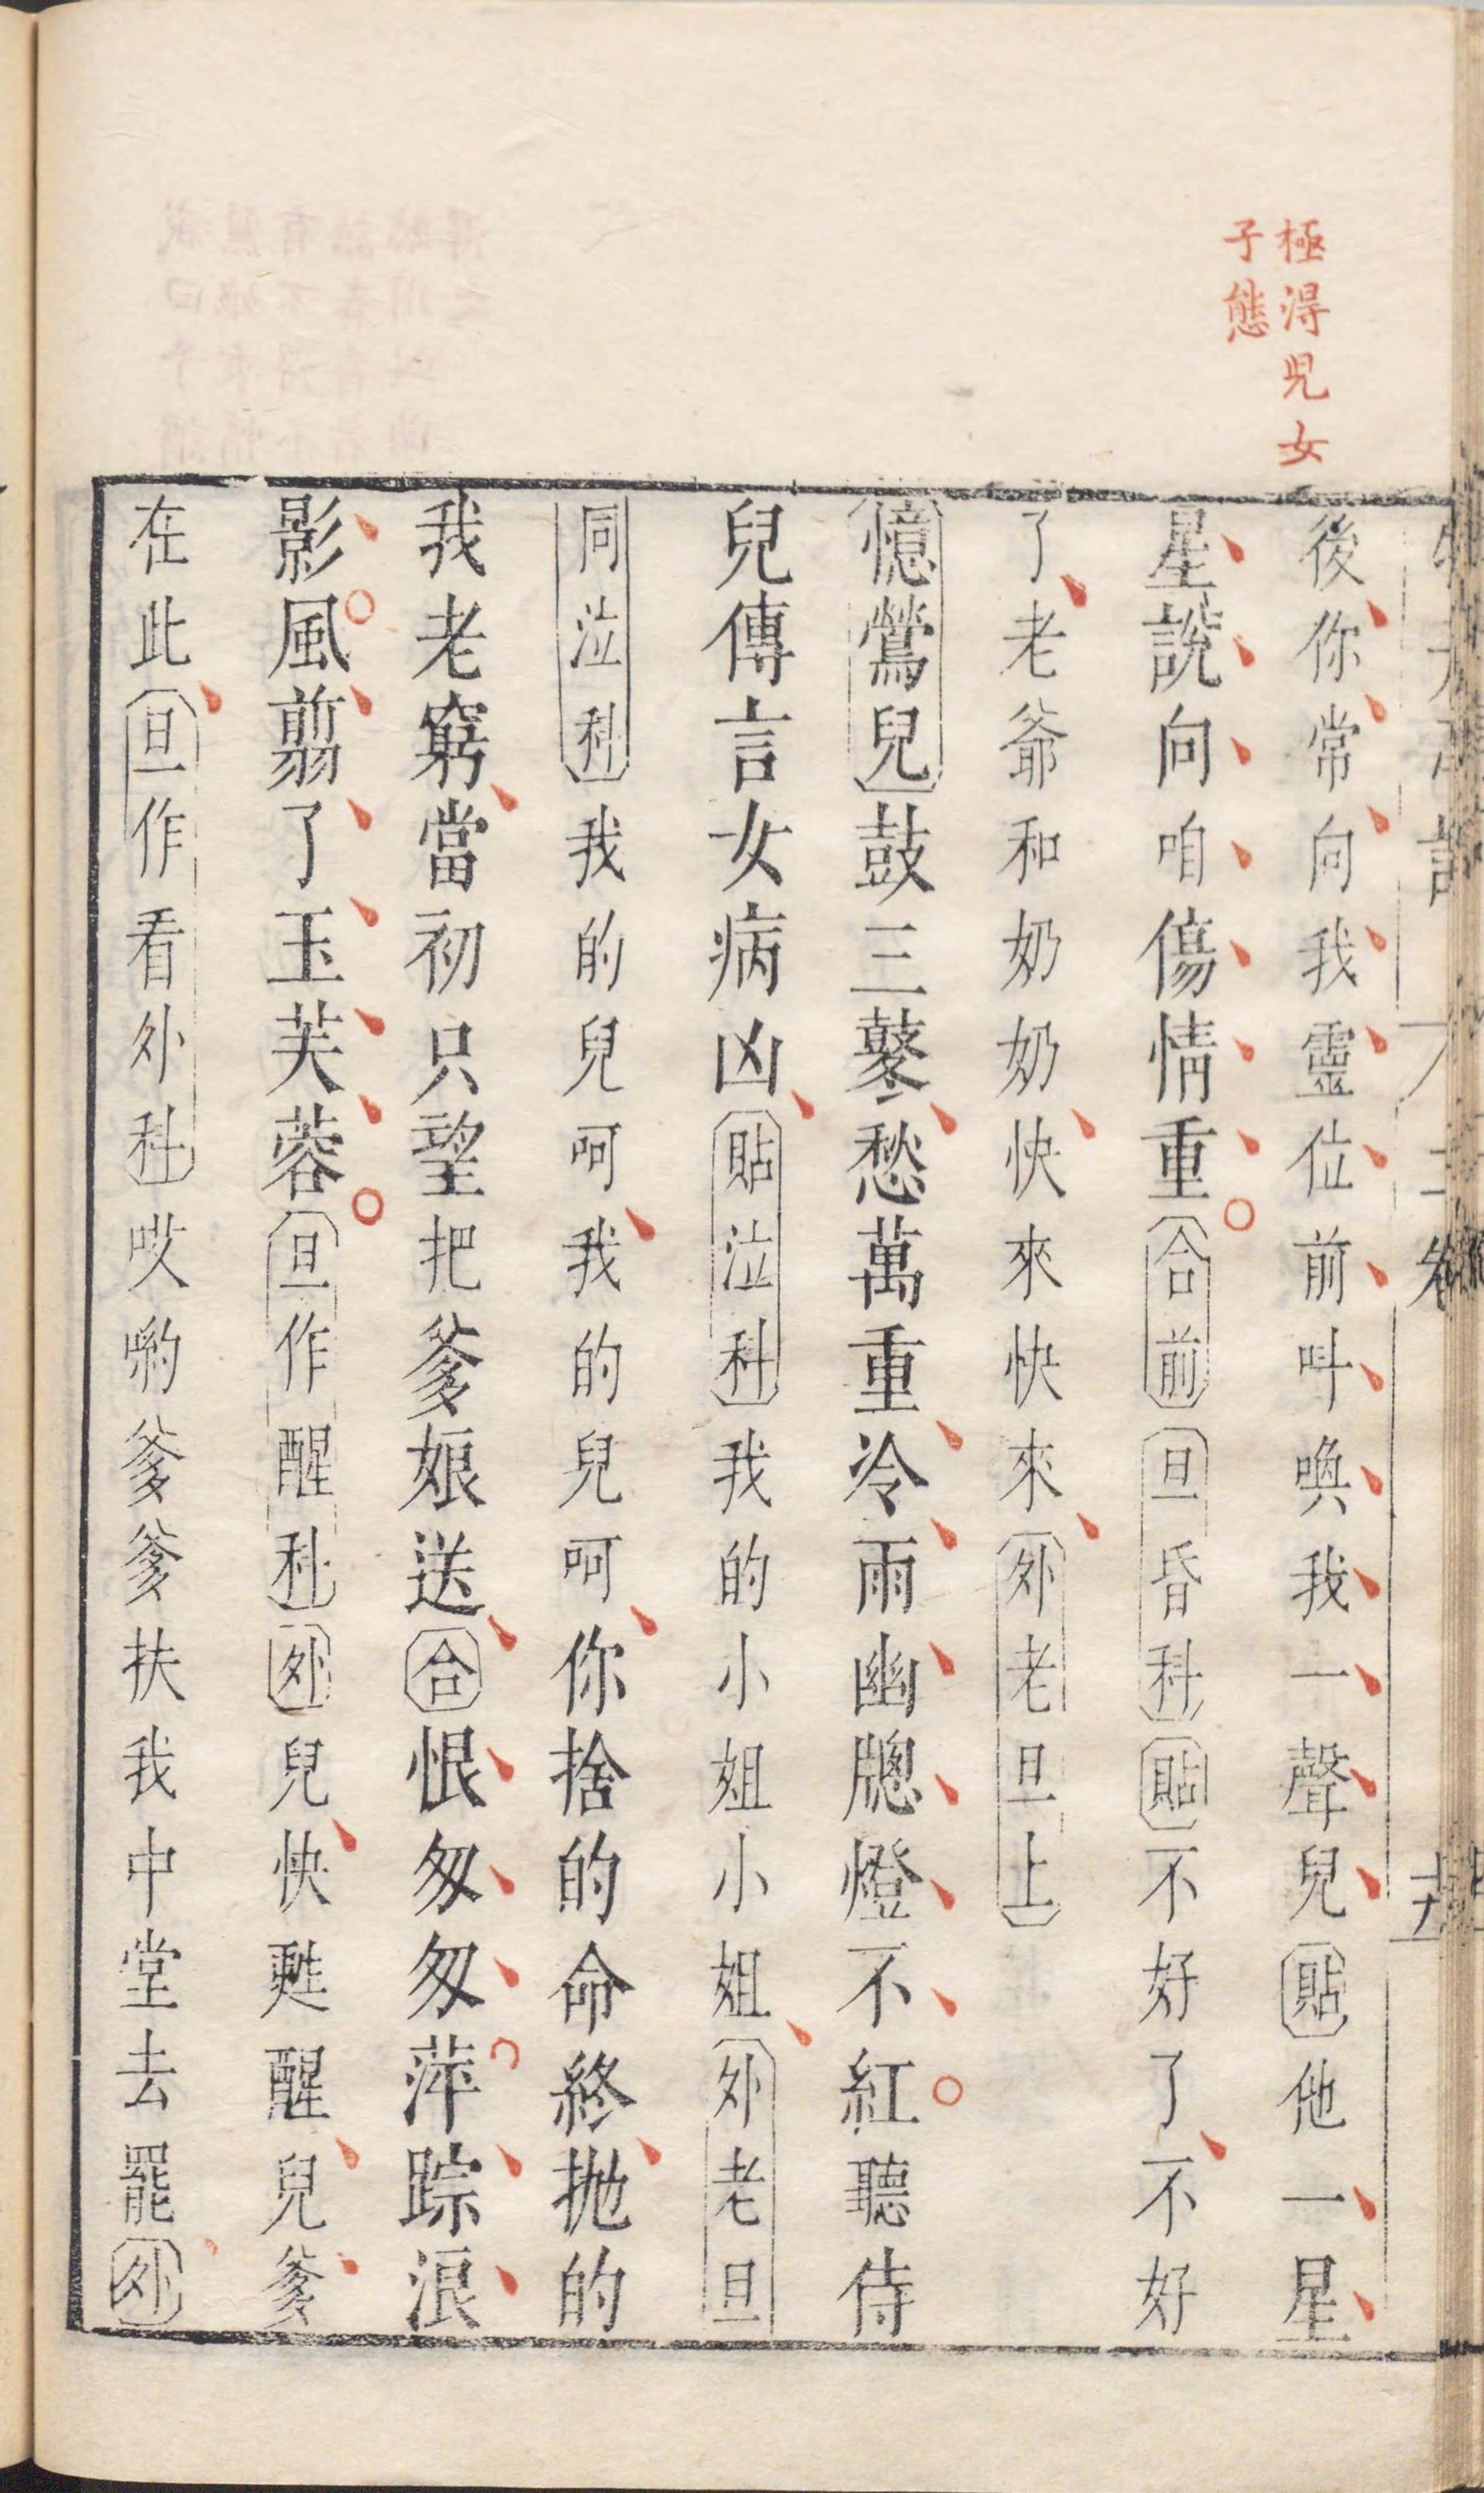 極淂児女
子態
後你常向我靈位前呌喚我一聲兒貼他一星
星說向咱傷情重合前旦昏科貼不好了不好
了老爺和奶奶快來快來外老旦上
憶鶯兒鼓三鼕愁萬重冷雨幽牕燈不紅聽侍
兒傳言女病凶貼泣科我的小姐小姐外老旦
同泣科我的兒呵我的兒呵你捨的命終抛的
我老窮當初只望把爹娘送合恨匆匆萍踪浪
影風翦了玉芙蓉旦作醒科外兒快甦醒兒爹
在此旦作看外科哎喲爹爹扶我中堂去罷外